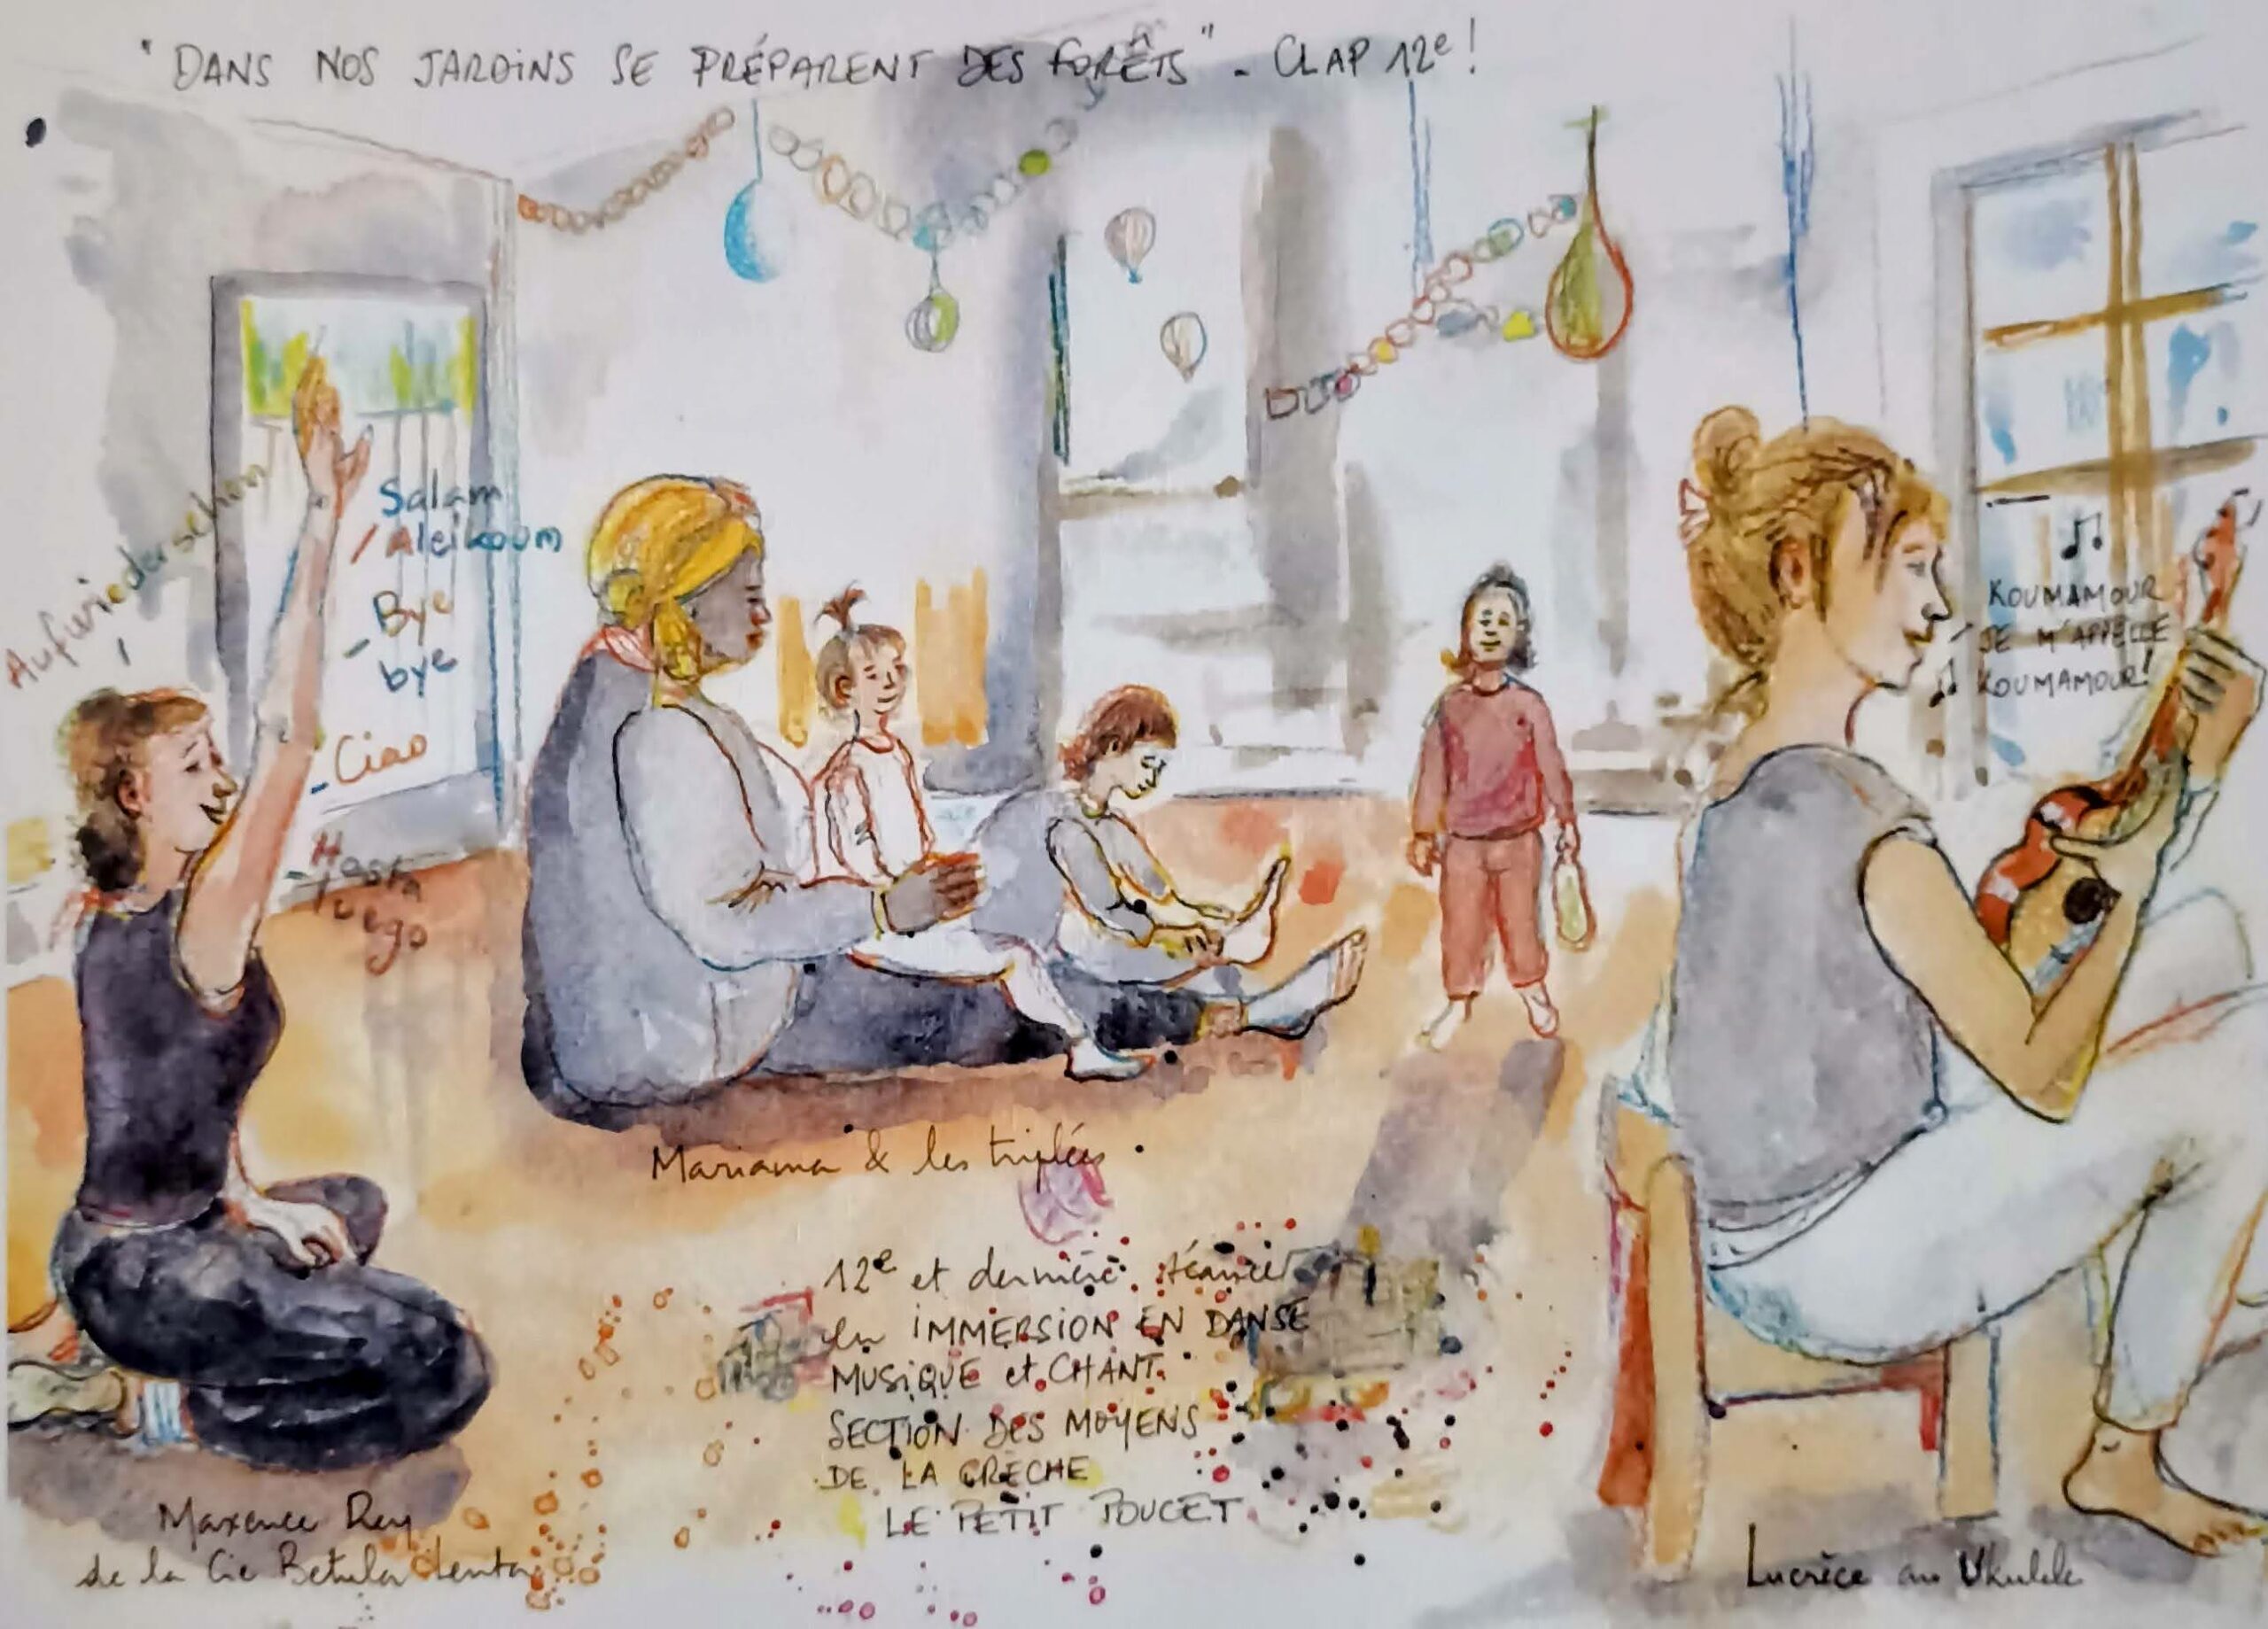 "DANS NOS JARDINS SE PRÉPARENT DES FORÊTS" - CLAP 12e !
Aufwiedersehen
Salam
Aleikoum
- Bye
bye
- Ciao
- Hasta
luego
KOUMAMOUR
JE M'APPELLE
KOUMAMOUR!
Mariama & les triplées
12e et dernière séance
en IMMERSION EN DANSE
MUSIQUE et CHANT
SECTION DES MOYENS
DE LA CRÈCHE
LE PETIT POUCET
Maxence Rey
de la Cie Betula Lenta
Lucrèce au Ukulele